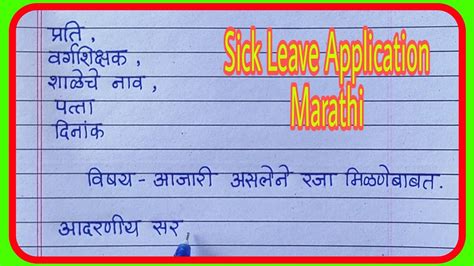 Sick Leave Application
Marathi
प्रति ,
वर्गशिक्षक ,
शाळेचे नाव ,
पत्ता
दिनांक
विषय - आजारी असलेने रजा मिळणेबाबत.
आदरणीय सर